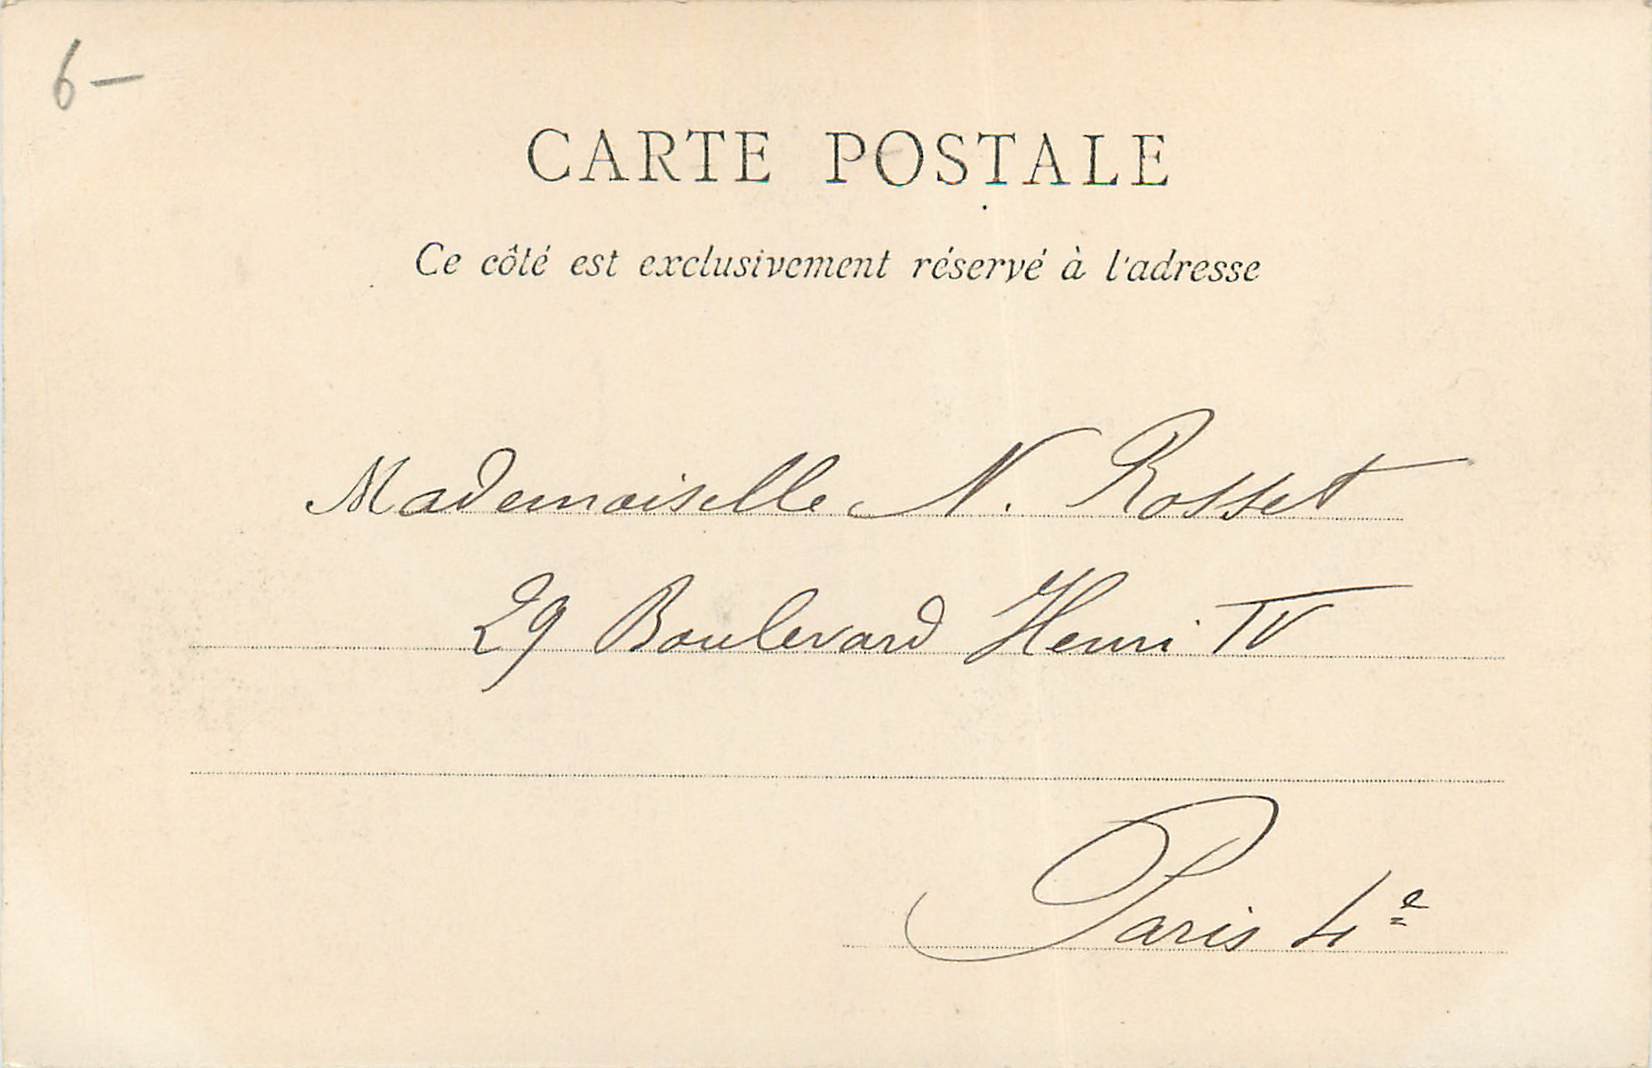 6–
CARTE POSTALE
Ce côté est exclusivement réservé à l'adresse
Mademoiselle N. Rosset
29 Boulevard Henri IV
Paris 4e